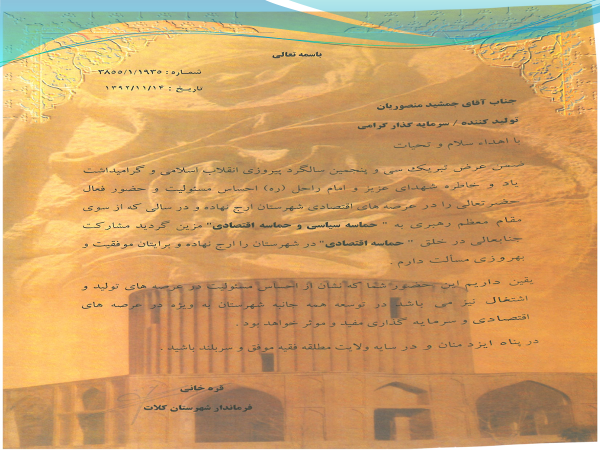 باسمه تعالی
شماره : ۳۸۵۵/۱/۱۹۳۵
تاریخ : ۱۳۹۲/۱۱/۱۴
جناب آقای جمشید منصوریان
تولید کننده / سرمایه گذار گرامی
با اهداء سلام و تحیات
ضمن عرض تبریک سی و پنجمین سالگرد پیروزی انقلاب اسلامی و گرامیداشت
یاد و خاطره شهدای عزیز و امام راحل (ره) احساس مسئولیت و حضور فعال
حضرتعالی را در عرصه های اقتصادی شهرستان ارج نهاده و در سالی که از سوی
مقام معظم رهبری به " حماسه سیاسی و حماسه اقتصادی" مزین گردید مشارکت
جنابعالی در خلق " حماسه اقتصادی" در شهرستان را ارج نهاده و برایتان موفقیت و
بهروزی مسألت دارم .
یقین داریم این حضور شما که نشان از احساس مسئولیت در عرصه های تولید و
اشتغال نیز می باشد در توسعه همه جانبه شهرستان به ویژه در عرصه های
اقتصادی و سرمایه گذاری مفید و موثر خواهد بود .
در پناه ایزد منان و در سایه ولایت مطلقه فقیه موفق و سربلند باشید .
قره خانی
فرماندار شهرستان کلات